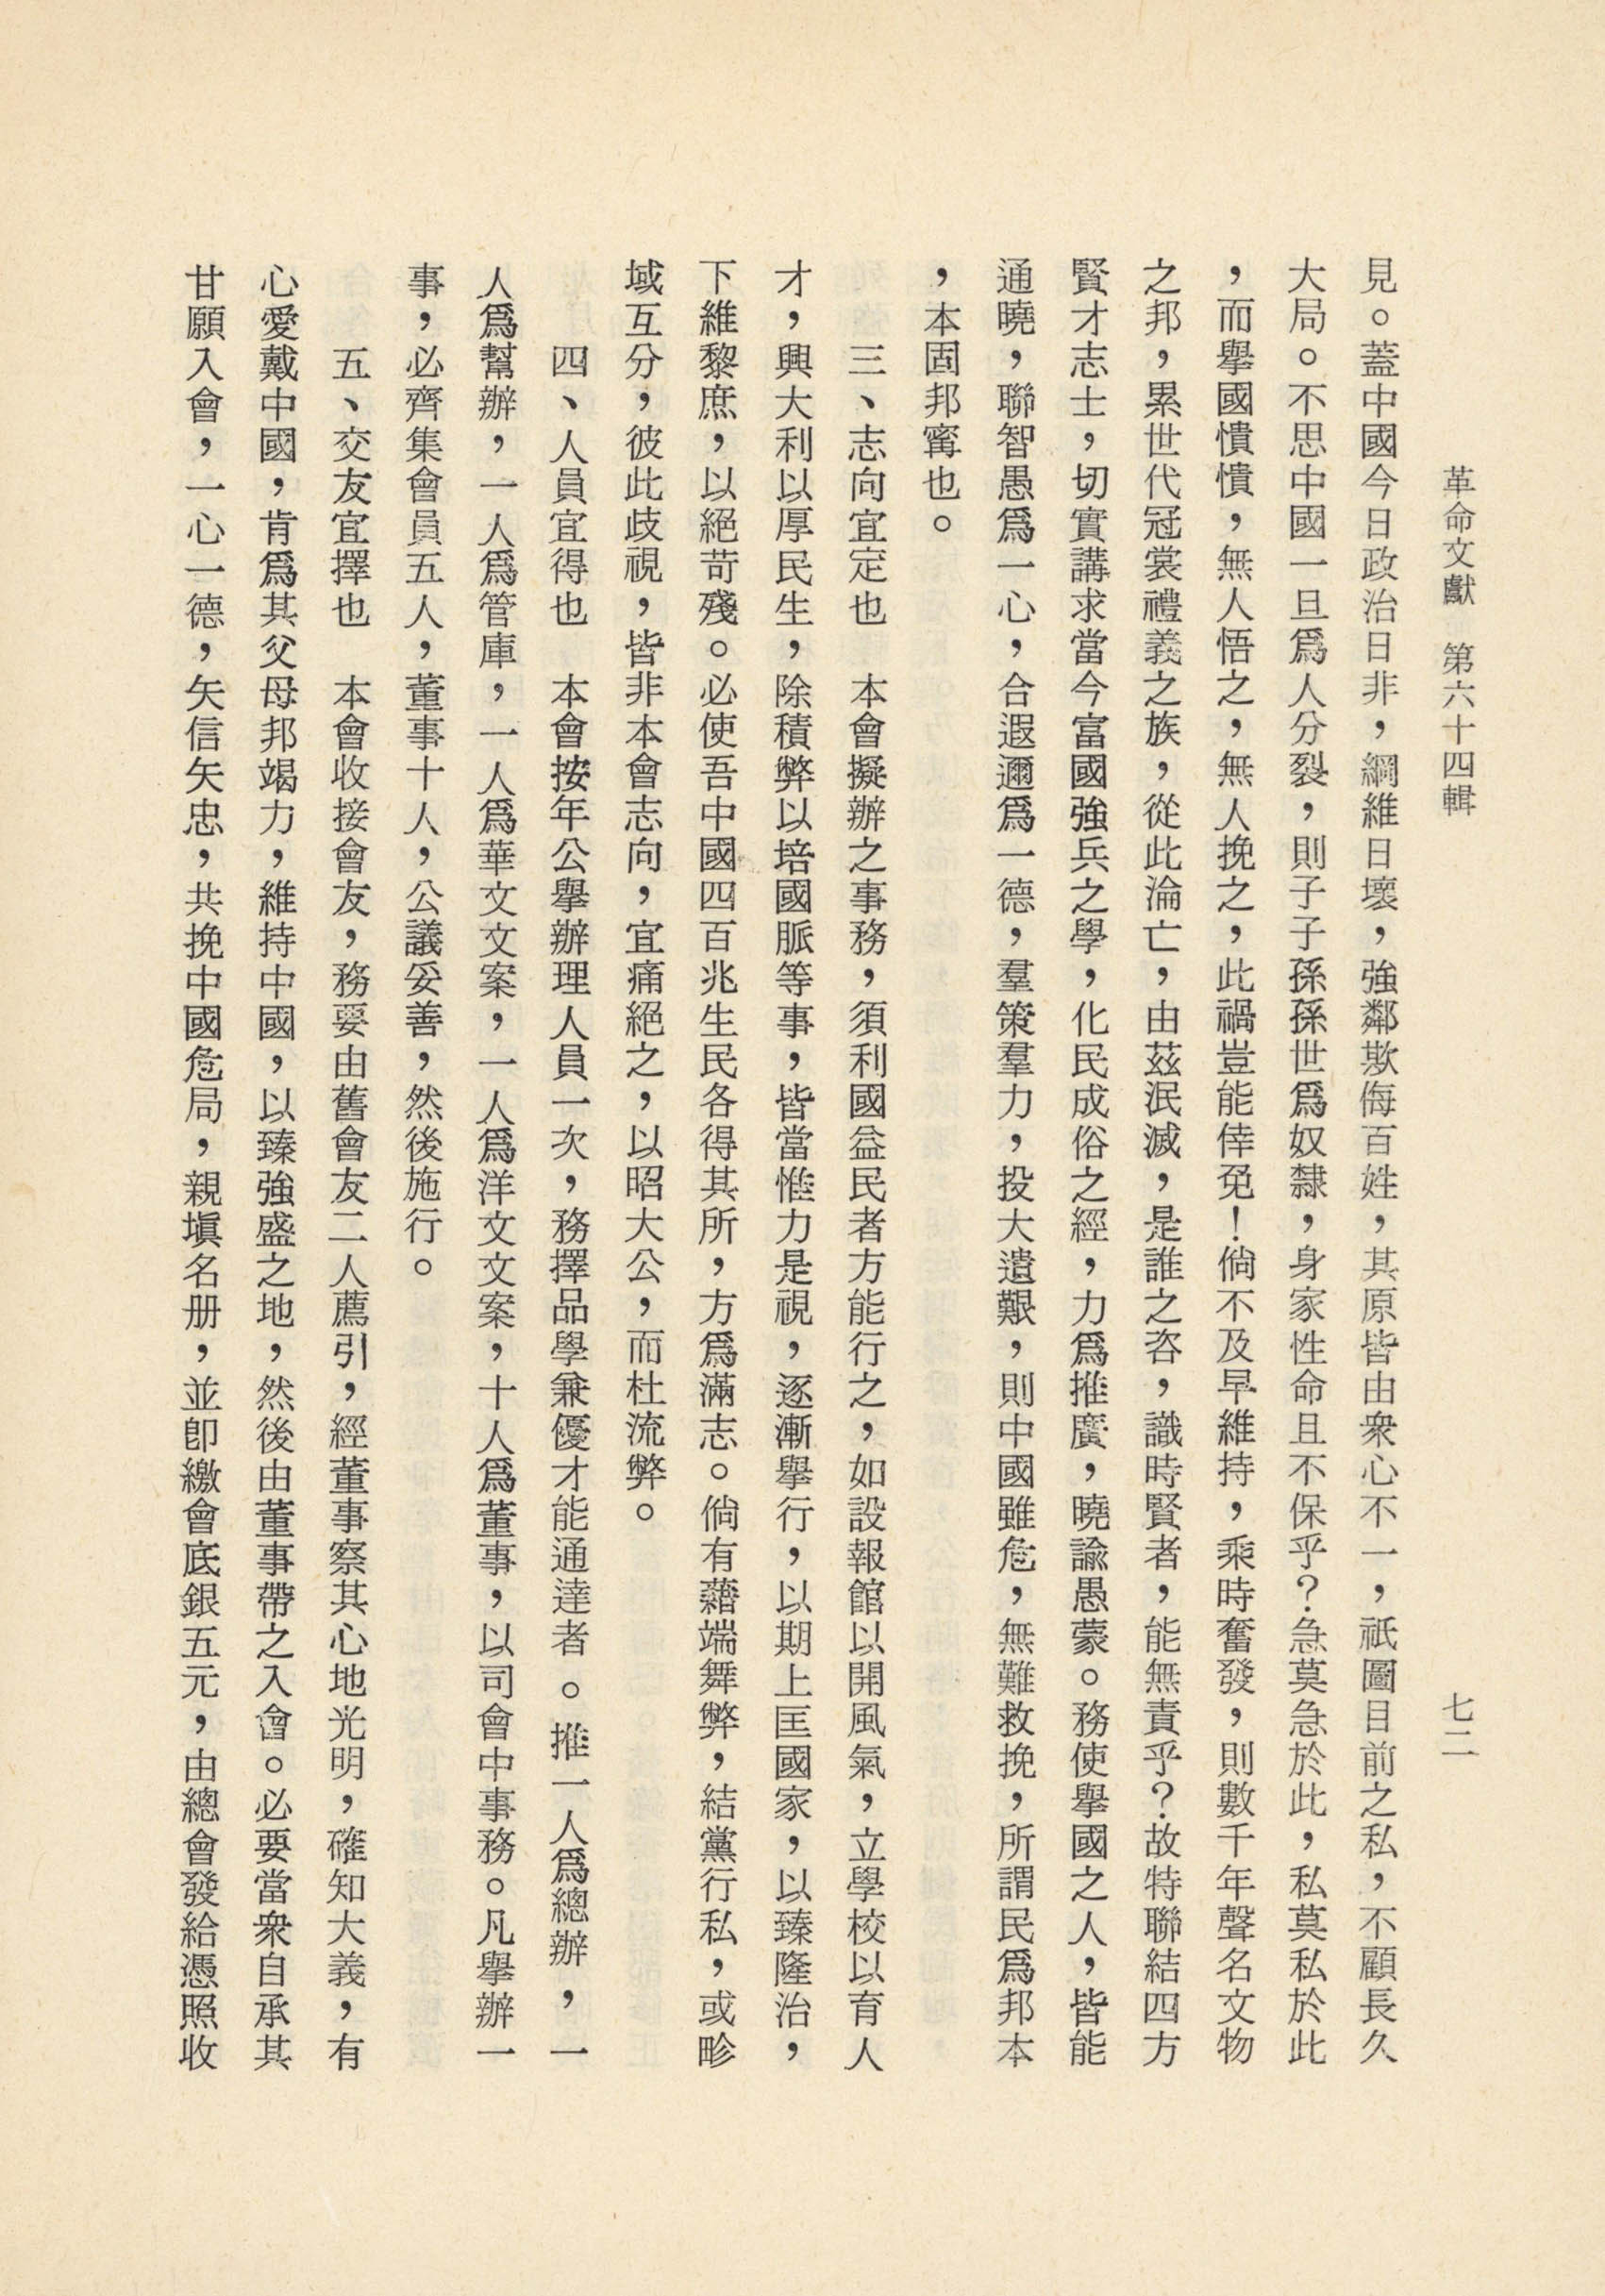 革命文獻　第六十四輯　七二
見。蓋中國今日政治日非，綱維日壞，強鄰欺侮百姓，其原皆由衆心不一，祇圖目前之私，不顧長久
大局。不思中國一旦爲人分裂，則子子孫孫世爲奴隸，身家性命且不保乎？急莫急於此，私莫私於此
，而舉國憒憒，無人悟之，無人挽之，此禍豈能倖免！倘不及早維持，乘時奮發，則數千年聲名文物
之邦，累世代冠裳禮義之族，從此淪亡，由茲泯滅，是誰之咨，識時賢者，能無責乎？故特聯結四方
賢才志士，切實講求當今富國強兵之學，化民成俗之經，力爲推廣，曉諭愚蒙。務使舉國之人，皆能
通曉，聯智愚爲一心，合遐邇爲一德，羣策羣力，投大遺艱，則中國雖危，無難救挽，所謂民爲邦本
，本固邦寗也。
三、志向宜定也　本會擬辦之事務，須利國益民者方能行之，如設報館以開風氣，立學校以育人
才，興大利以厚民生，除積弊以培國脈等事，皆當惟力是視，逐漸舉行，以期上匡國家，以臻隆治，
下維黎庶，以絕苛殘。必使吾中國四百兆生民各得其所，方爲滿志。倘有藉端舞弊，結黨行私，或畛
域互分，彼此歧視，皆非本會志向，宜痛絕之，以昭大公，而杜流弊。
四、人員宜得也　本會按年公舉辦理人員一次，務擇品學兼優才能通達者。推一人爲總辦，一
人爲幫辦，一人爲管庫，一人爲華文文案，一人爲洋文文案，十人爲董事，以司會中事務。凡舉辦一
事，必齊集會員五人，董事十人，公議妥善，然後施行。
五、交友宜擇也　本會收接會友，務要由舊會友二人薦引，經董事察其心地光明，確知大義，有
心愛戴中國，肯爲其父母邦竭力，維持中國，以臻強盛之地，然後由董事帶之入會。必要當衆自承其
甘願入會，一心一德，矢信矢忠，共挽中國危局，親塡名册，並卽繳會底銀五元，由總會發給憑照收